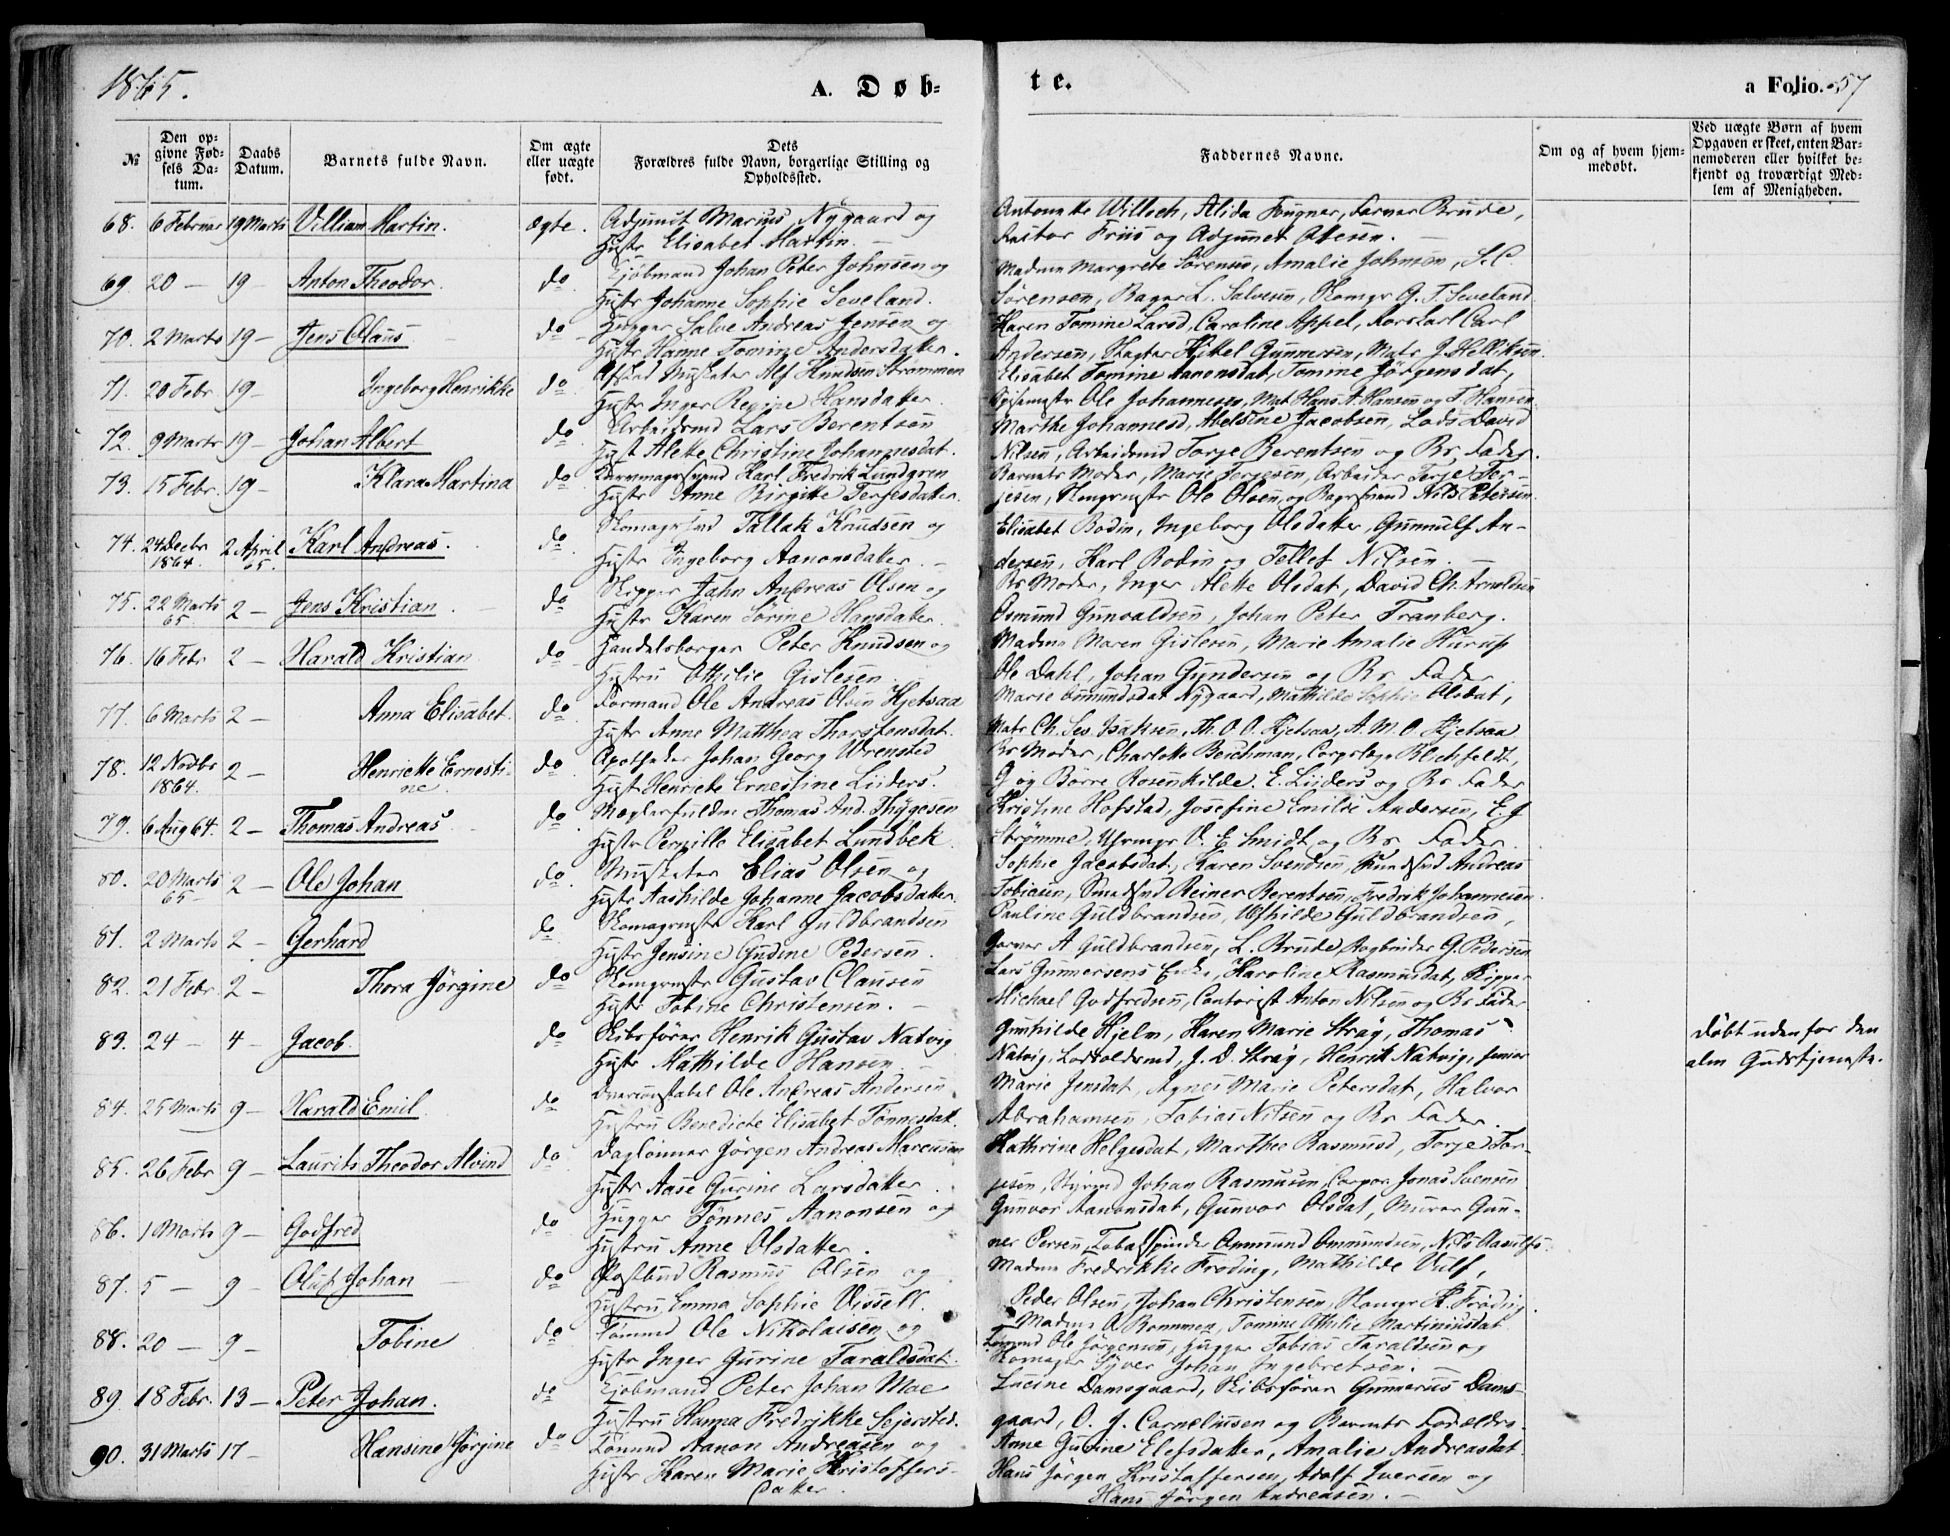 1865.
A. Døb-
te.
a Folio. 57
№
Den opgivne Fødsels Datum.
Daabs Datum.
Barnets fulde Navn.
Om ægte eller uægte født.
Dets Forældres fulde Navn, borgerlige Stilling og Opholdssted.
Faddernes Navne.
Om og af hvem hjemmedøbt.
Ved uægte Børn af hvem Opgaven er skeet, enten Barnemoderen eller hvilket bekjendt og troværdigt Medlem af Menigheden.
68. 6 Februar 19 Marts Villiam Martin. ægte. Adjunct Marius Nygaard og
Hustr Elisabet Martin. —
Antonette Willoch, Alida Fugner, Farver Brude,
Pastor Friis og Adjunct Olesen. —
69 20 — 19 — Anton Theodor. do Kjøbmand Johan Peter Johnsen og
Hustr Johanne Sophie Seveland.
Madme Margrete Sørensen, Amalie Johnson, S. C.
Sørensen, Bager L. Salvesen, Skomgr G. T. Seveland
70. 2 Marts 19 — Jens Olaus do Hugger Salve Andreas Jensen og
Hustr Hanne Tomine Andersdatter.
Karen Tomine Larsd, Caroline Appel, Carl
Andersen, Slagter Kittel Gunnersen, Matr J. Helliksen.
71. 20 Febr 19 — Ingeborg Henrikke do Afskd Musketer Alf Knudsen Strømmen
Hustr Inger Regine Hansdatter.
Elisabet Tomine Aanonsdat, Tomine Jørgensdat,
Ole Johannesen, Mat Hans A. Hansen og T. Hansen.
72. 9 Marts 19 — Johan Albert do Arbeidsmd Lars Berentsen
Hust Alette Christine Johannesdat.
Marthe Johannesd, Abelsine Jacobsen, Lods David
Nilsen, Arbeidsmd Torje Berentsen og Bs. Fader.
73. 15 Febr. 19 — Klara Martina do Karl Fredrik Lundgren
Hustr Anne Birgitte Terjesdatter.
Barnets Moder, Marie Terjesen, Arbeider Terje Ter-
jesen, Ole Olsen, og Nils Petersen.
74. 24 Decbr 1864. 2 April 65. Karl Andreas. do Tallak Knudsen og
Hustr Ingeborg Aanonsdatter. —
Elisabet Bodin, Ingeborg Olsdatter, Gunnulf An-
dersen, Karl Bodin og Tellef Nilsen. —
75. 22 Marts 65 2 — Jens Kristian. do Skipper John Andreas Olsen og
Hustr Karen Sørine Hansdatter.
Bs Moder, Inger Alette Olsdat, David Ch. Arnoldsen
Osmund Gunvaldsen, Johan Peter Tranberg.
76. 16 Febr 2 — Harald Kristian do Handelsborger Peter Knudsen og
Hustru Othilie Gislesen
Madme Maren Gislesen, Marie Amalie Hurup
Ole Dahl, Johan Gundersen og Bs Fader
77. 6 Marts 2 — Anna Elisabet. do Formand Ole Andreas Olsen Kjetsaa
Hustr Anne Matthea Thorstensdat.
Marie Osmundsdat Nygaard, Mathilde Sophie Olsdat,
Matr Ch. Sev. Isaksen, Th. O. O. Kjetsaa, A. M. O. Kjetsaa
78. 12 Novbr 1864. 2 — Henriette Ernesti-
ne. do Apotheker Johan Georg Wrensted
Hust Henriette Ernestine Lüders.
Bs Moder, Charlotte Beichman, Corpslæge Blichfeldt,
G og Børre Rosenkilde. E. Lüders og Bs Fader
79. 6 Aug 64. 2 — Thomas Andreas do Mæglerfuldm Thomas And. Thygesen
Hustr Pernille Elisabet Lundbek.
Kristine Hofstad, Josefine Emilie Andersen, E. J
Strømme, Uhrmgr V. E. Smidt og Bs Fader.
80. 20 Marts 65 — 2 — Ole Johan do Musketer Elias Olsen og
Hustr Aashilde Johanne Jacobsdatter.
Sophie Jacobsdat, Karen Svendsen, Andreas
Tobiasen, Reiner Berentsen, Fredrik Johannesen.
81. 2 Marts 2 — Gerhard do Skomagermstr Karl Guldbrandsen
Hustr Jensine Gudine Pedersen.
Pauline Guldbrandsen, Guldbrandsen,
A Guldbrandsen, L. Brude, Bogbinder G. Pedersen
82. 21 Febr. 2 — Thora Jørgine do Gustav Clausen
Hustr Tobine Christensen. —
Lars Gunnersens Enke, Karoline Rasmusdat, Skipper
Michael Godfredsen, Contorist Anton Nilsen og Bs Fader
83. 24 — 4 — Jacob. do Skibsfører Henrik Gustav Natvig
Hustr Mathilde Hansen —
Gunhilde Hjelm, Karen Marie Stray, Thomas
Natvig, J. D. Stray, Henrik Natvig, junior
Døbt udenfor den
alm Gudstjeneste.
84. 25 Marts 9 — Harald Emil do Ole Andreas Andersen
Hustru Benedicte Elisabet Tønnesdatt.
Marie Jensdat, Agnes Marie Petersdat, Halvor
Abrahamsen, Tobias Nilsen og Bs Fader.
85. 26 Febr 9 — Laurits Theodor Alvind do Daglønner Jørgen Andreas Marcussen
Hustr Aase Gurine Larsdatter.
Kathrine Helgesdat, Marthe Rasmusd, Torje Tor-
jesen, Styrmd Johan Rasmusen, Corpor Jonas Svensen
86. 1 Marts 9 — Godfred do Hugger Tønnes Aanonsen og
Hustru Anne Olsdatter.
Gunvor Aanonsdat, Gunvor Olsdat, Murer Gun-
ner Persen, Tobakspinder Osmund Omundsen, Nils Aasulfs.
87. 5 — 9 — Oluf Johan do Postbud Rasmus Olsen og
Hustru Emma Sophie Vissell.
Madme Fredrikke Frøding, Mathilde Vulf,
Peder Olsen, Johan Christensen, Skomgr K. Frøding.
88. 20 — 9 — Tobine do Tømmd Ole Nikolaisen og
Hustr Inger Gurine Taraldsdat.
Madme A. Rommen, Tomine Othilie Martiniusdat
Tømmd Ole Jørgensen, Hugger Tobias Taraldsen og
Skomager Syver Johan Ingebretsen. —
89. 18 Febr. 13 — Peter Johan. do Kjøbmand Peter Johan Moe
Hustru Hanna Fredrikke Sejersted.
Lucine Damsgaard, Skibsfører Gunnerus Dams-
gaard, O. J. Corneliusen og Barnets Forældre.
90. 31 Marts 17 — Hansine Jørgine do Tømmd Aanon Andreasen og
Hustr Karen Marie Kristoffers-
datter.
Anne Gurine Elefsdatter, Amalie Andreasdat
Hans Jørgen Kristoffersen, Adolf Iversen og
Hans Jørgen Andreasen. —